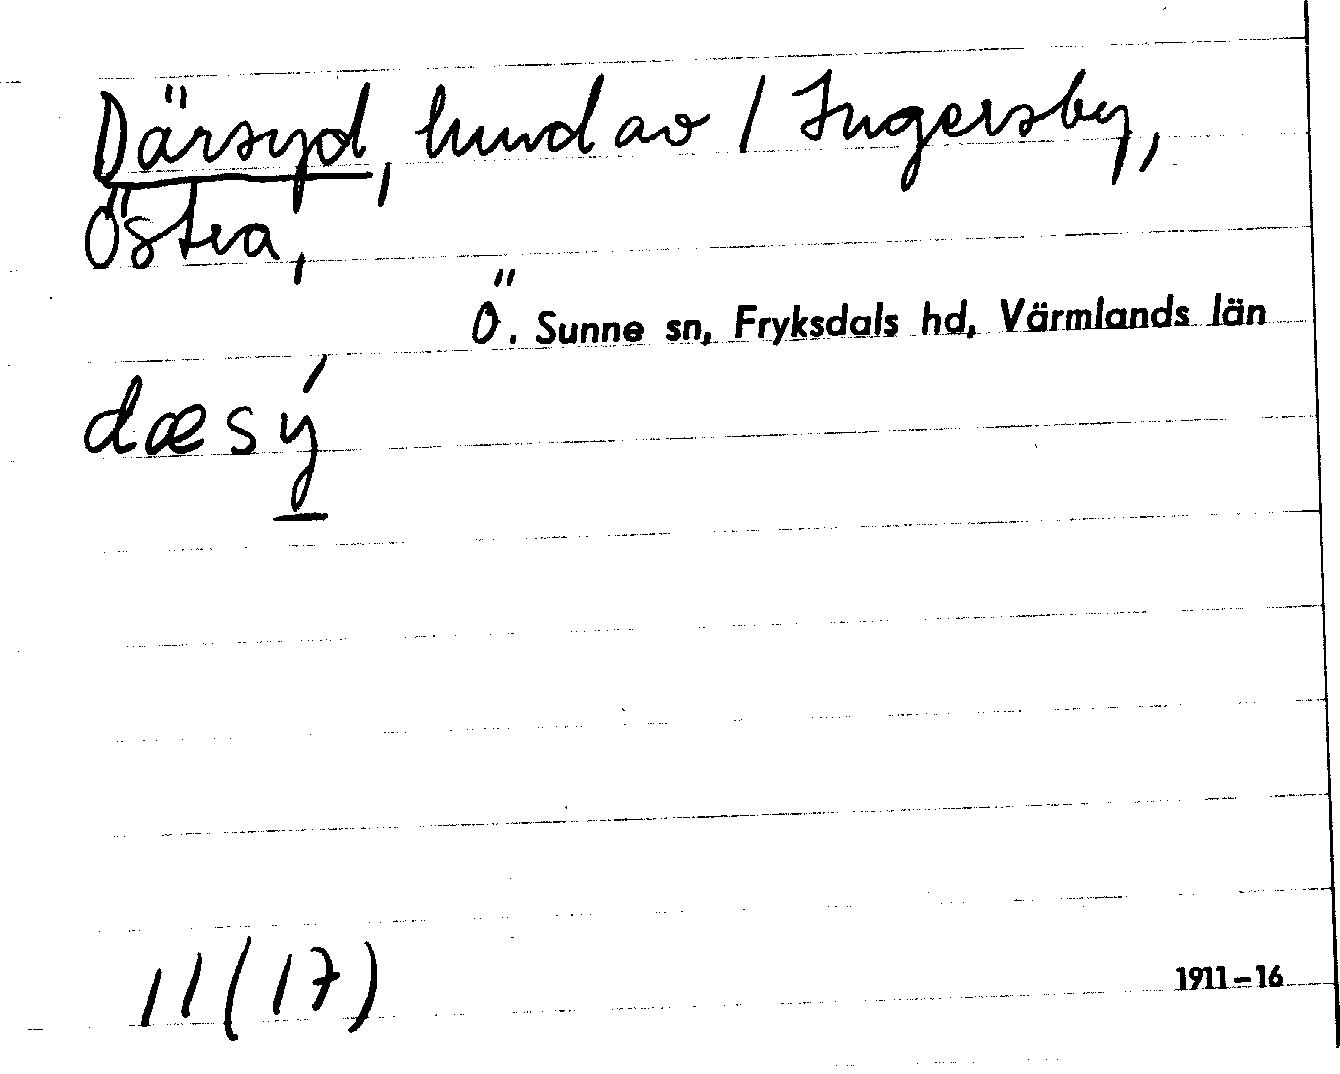 Därsyd, hemd av / Ingersby,
Östra,
Ö. Sunne sn, Fryksdals hd, Värmlands län
dæsý
11 (17)
1911–16